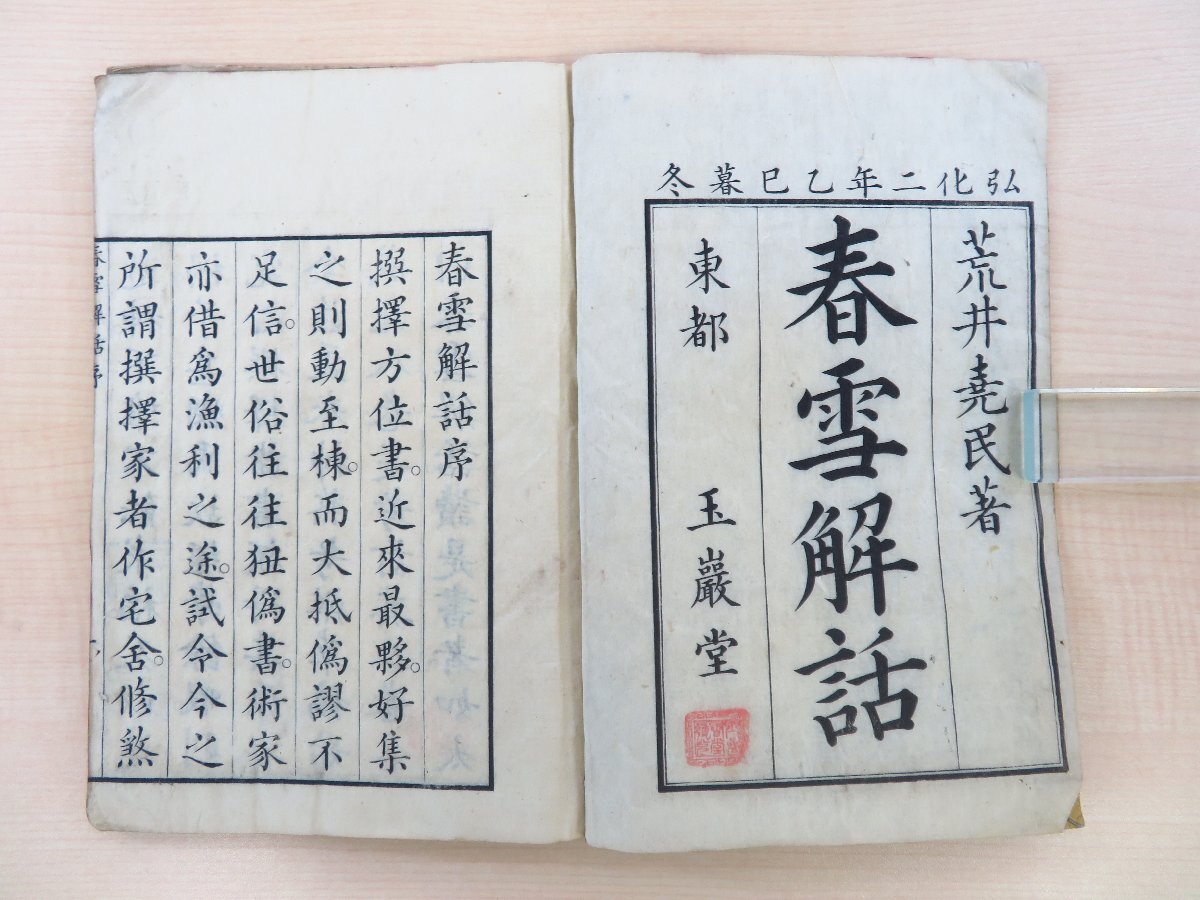 弘化二年乙巳暮冬
荒井堯民著
春雪解話
東都 玉巖堂
春雪解話序
撰擇方位書。近來最夥。好集
之則動至棟。而大抵僞謬不
足信。世俗往往狃僞書。術家
亦借爲漁利之途。試令今之
所謂撰擇家者作宅舍。修煞
春雪解話序